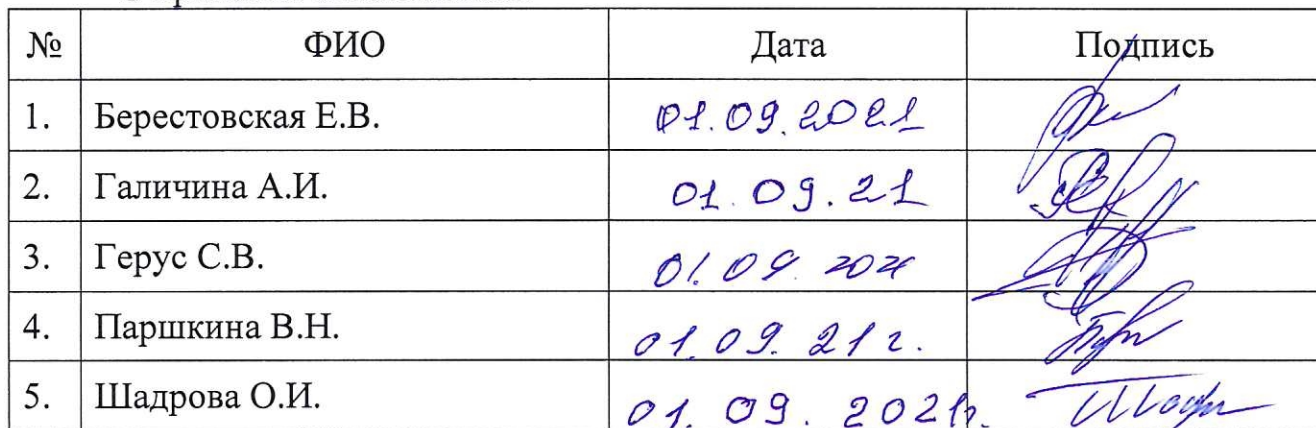 № ФИО Дата Подпись
1. Берестовская Е.В. 01.09.2021
2. Галичина А.И. 01.09.21
3. Герус С.В. 01.09.
4. Паршкина В.Н. 01.09.21г.
5. Шадрова О.И. 01.09.2021г.